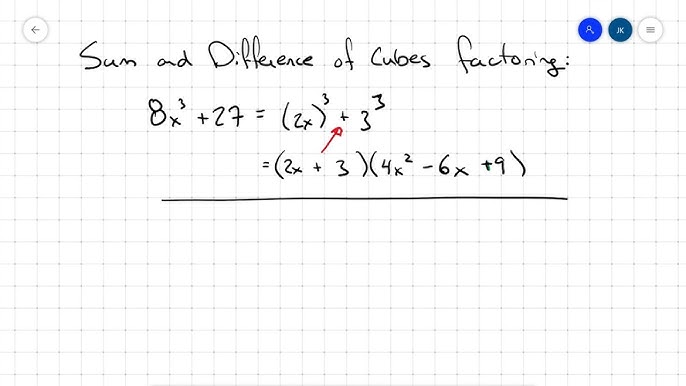 Sum and Difference of Cubes factoring:
8x³ + 27 = (2x)³ + 3³
= (2x + 3)(4x² - 6x + 9)
JK